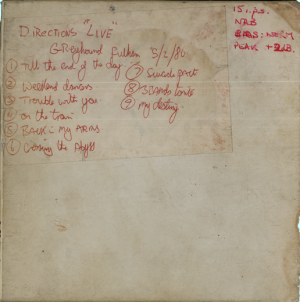 DIRECTIONS "LIVE"
GREYHOUND Fulham 5/2/80
① Till the end of the day
② Weekend dancers
③ Trouble with you
④ on the train
⑤ BACK in my ARMS
⑥ Crossing the Abyss
⑦ Suicide pact
⑧ 3 Bands tonite
⑨ my destiny
15 i.p.s.
NAB
NORM
PEAK +2dB.